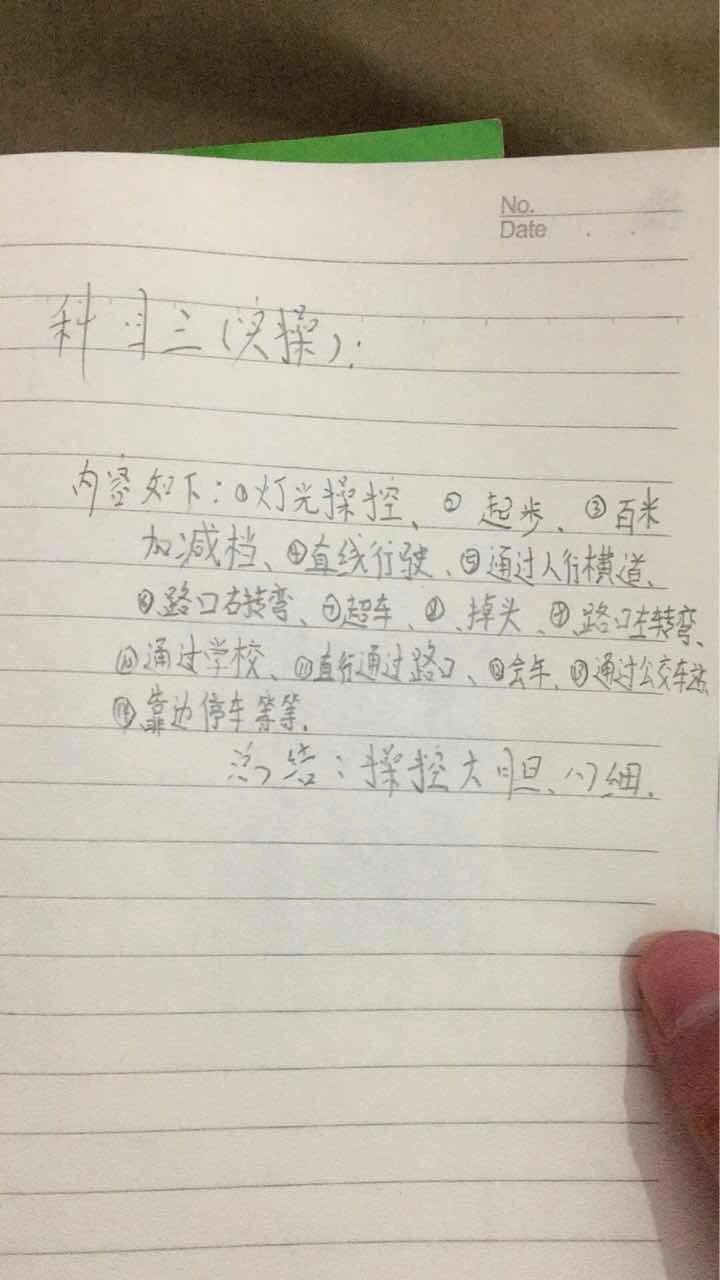 No.
Date
科目三(实操):
内容如下:①灯光操控、② 起步、③百米
加减档、④直线行驶、⑤通过人行横道、
⑥路口右转弯、⑦超车、⑧、掉头、⑨、路口左转弯、
⑩通过学校、⑪直行通过路口、⑫会车、⑬通过公交车站
⑭靠边停车等等.
总结:操控大胆、心细.